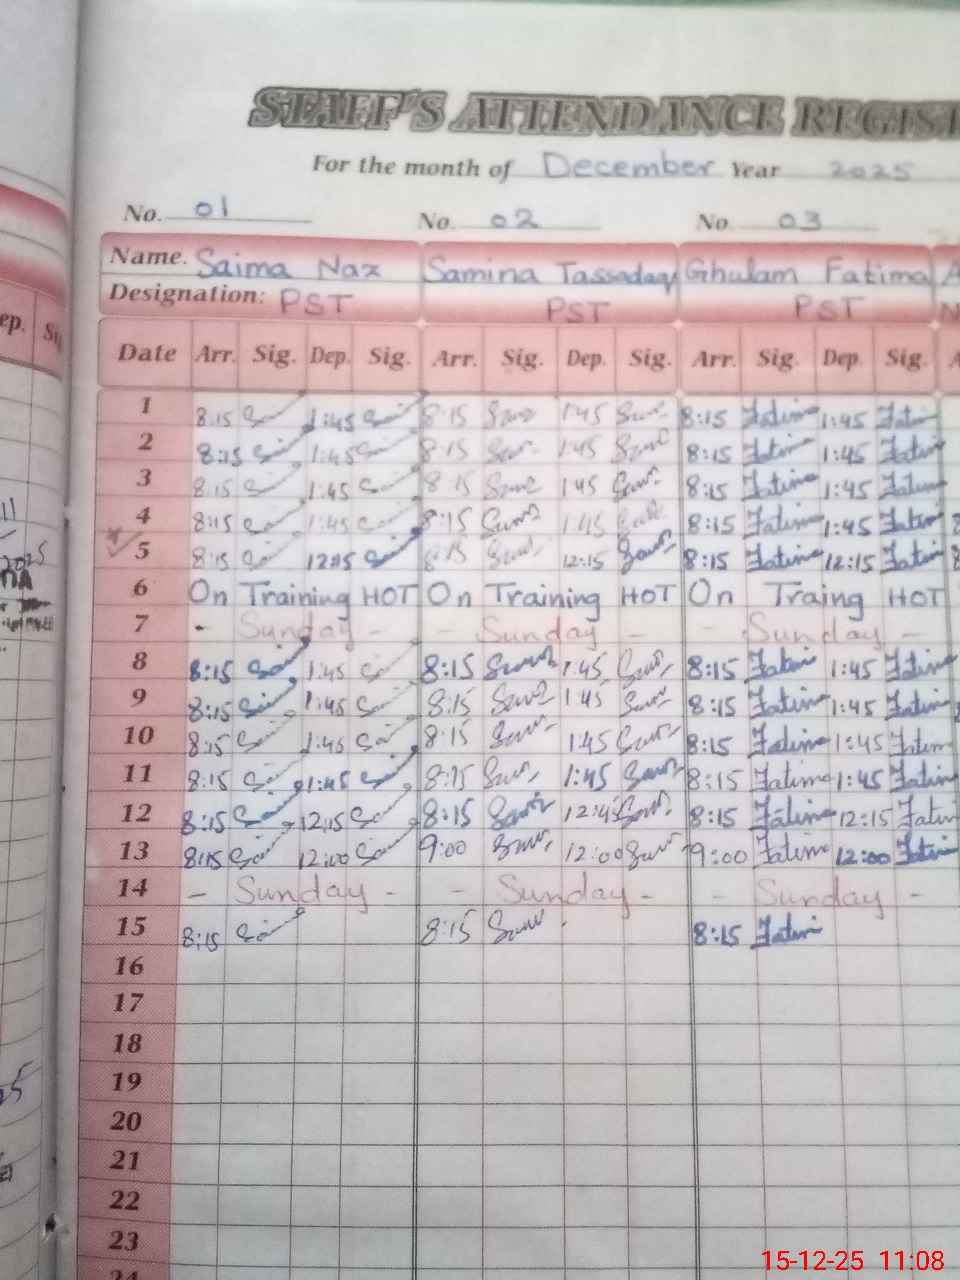 STAFF'S ATTENDANCE REGIS
For the month of December Year 2025
No. 01 No. 02 No. 03
Name. Saima Naz Samina Tassadaq Ghulam Fatima
Designation: PST PST PST
Date Arr. Sig. Dep. Sig. Arr. Sig. Dep. Sig. Arr. Sig. Dep. Sig.
1 8:15 1:45 8:15 1:45 8:15 Fatima 1:45 Fatim
2 8:15 1:45 8:15 1:45 8:15 Fatima 1:45 Fatima
3 8:15 1:45 8:15 1:45 8:15 Fatima 1:45 Fatima
4 8:15 1:45 8:15 1:45 8:15 Fatima 1:45 Fatima
5 8:15 12:15 8:15 12:15 8:15 Fatima 12:15 Fatima
6 On Training HOT On Training HOT On Traing HOT
7 - Sunday - - Sunday - - Sunday -
8 8:15 1:45 8:15 1:45 8:15 Fatim 1:45 Fatima
9 8:15 1:45 8:15 1:45 8:15 Fatima 1:45 Fatima
10 8:15 1:45 8:15 1:45 8:15 Fatima 1:45 Fatima
11 8:15 1:45 8:15 1:45 8:15 Fatima 1:45 Fatima
12 8:15 12:15 8:15 12:45 8:15 Fatima 12:15 Fatim
13 8:15 12:00 9:00 12:00 9:00 Fatima 12:00 Fatim
14 - Sunday - - Sunday - - Sunday -
15 8:15 8:15 8:15 Fatim
16
17
18
19
20
21
22
23
24
15-12-25 11:08